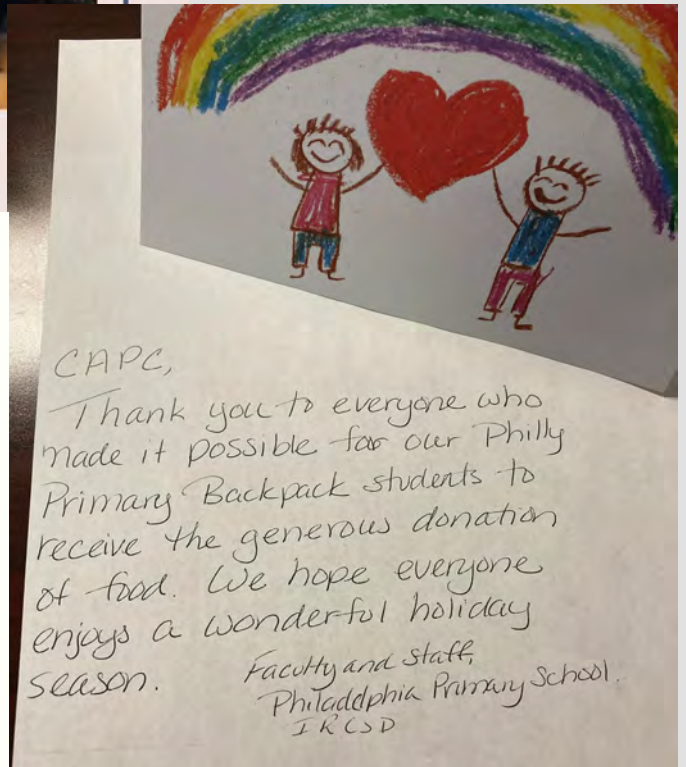 CAPC,
Thank you to everyone who
made it possible for our Philly
Primary Backpack students to
receive the generous donation
of food. We hope everyone
enjoys a wonderful holiday
season.
Faculty and Staff,
Philadelphia Primary School.
IRCSD